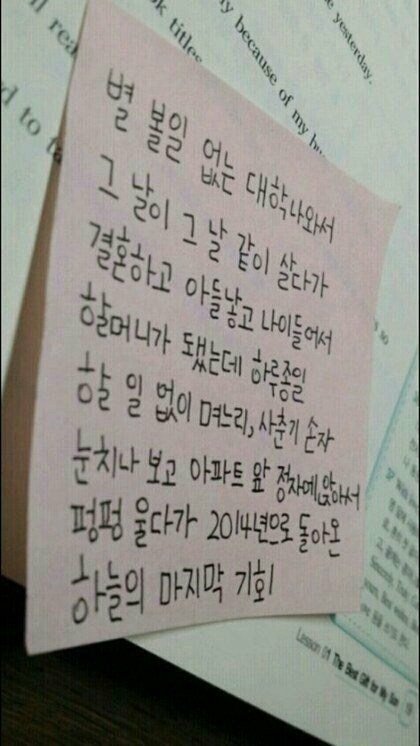 e yesterday.
my because of my hu
ok titles
ll rea
d to ta
별 볼일 없는 대학나와서
그 날이 그 날 같이 살다가
결혼하고 아들낳고 나이들어서
할머니가 됐는데 하루종일
할 일 없이 며느리, 사춘기 손자
눈치나 보고 아파트 앞 정자에 앉아서
펑펑 울다가 2014년으로 돌아온
하늘의 마지막 기회
Lesson 01 The Best Gift for My Son